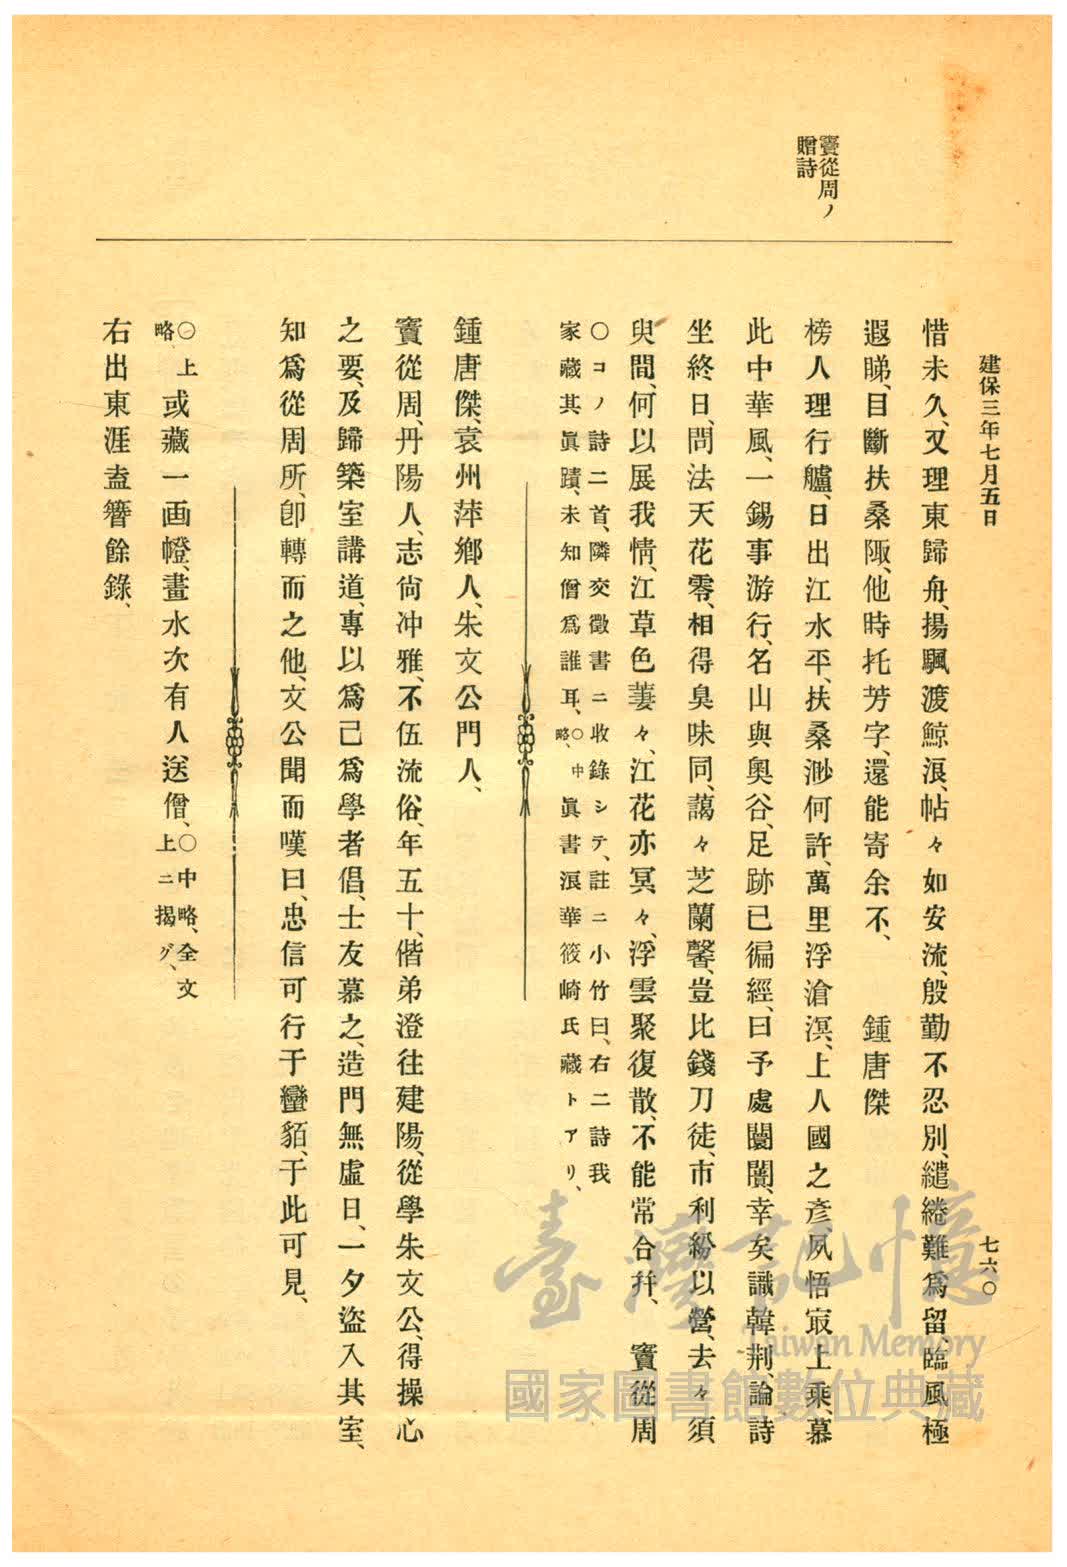 建保三年七月五日
七六〇
竇從周ノ
贈詩
惜未久、又理東歸舟、揚颿渡鯨浪、帖々如安流、殷勤不忍別、繾綣難爲留、臨風極
遐睇、目斷扶桑陬、他時托芳字、還能寄余不、　鍾唐傑
榜人理行艫、日出江水平、扶桑渺何許、萬里浮滄溟、上人國之彥、夙悟㝡上乘、慕
此中華風、一錫事游行、名山與奧谷、足跡已徧經、曰予處闤闠、幸矣識韓荆、論詩
坐終日、問法天花零、相得臭味同、藹々芝蘭馨、豈比錢刀徒、市利紛以營、去々須
臾間、何以展我情、江草色萋々、江花亦冥々、浮雲聚復散、不能常合幷、　竇從周
〇コノ詩二首、隣交徵書ニ收錄シテ、註ニ小竹曰、右二詩我
家藏其眞蹟、未知僧爲誰耳、〇中略、眞書浪華筱崎氏藏トアリ、
鍾唐傑、袁州萍鄕人、朱文公門人、
竇從周、丹陽人、志尙冲雅、不伍流俗、年五十、偕弟澄往建陽、從學朱文公、得操心
之要、及歸築室講道、專以爲己爲學者倡、士友慕之、造門無虛日、一夕盜入其室、
知爲從周所、卽轉而之他、文公聞而嘆曰、忠信可行于蠻貊、于此可見、
〇上略、或藏一画幀、畫水次有人送僧、〇中略、全文上ニ揭グ、
右出東涯盍簪餘錄、
臺灣記憶
Taiwan Memory
國家圖書館數位典藏